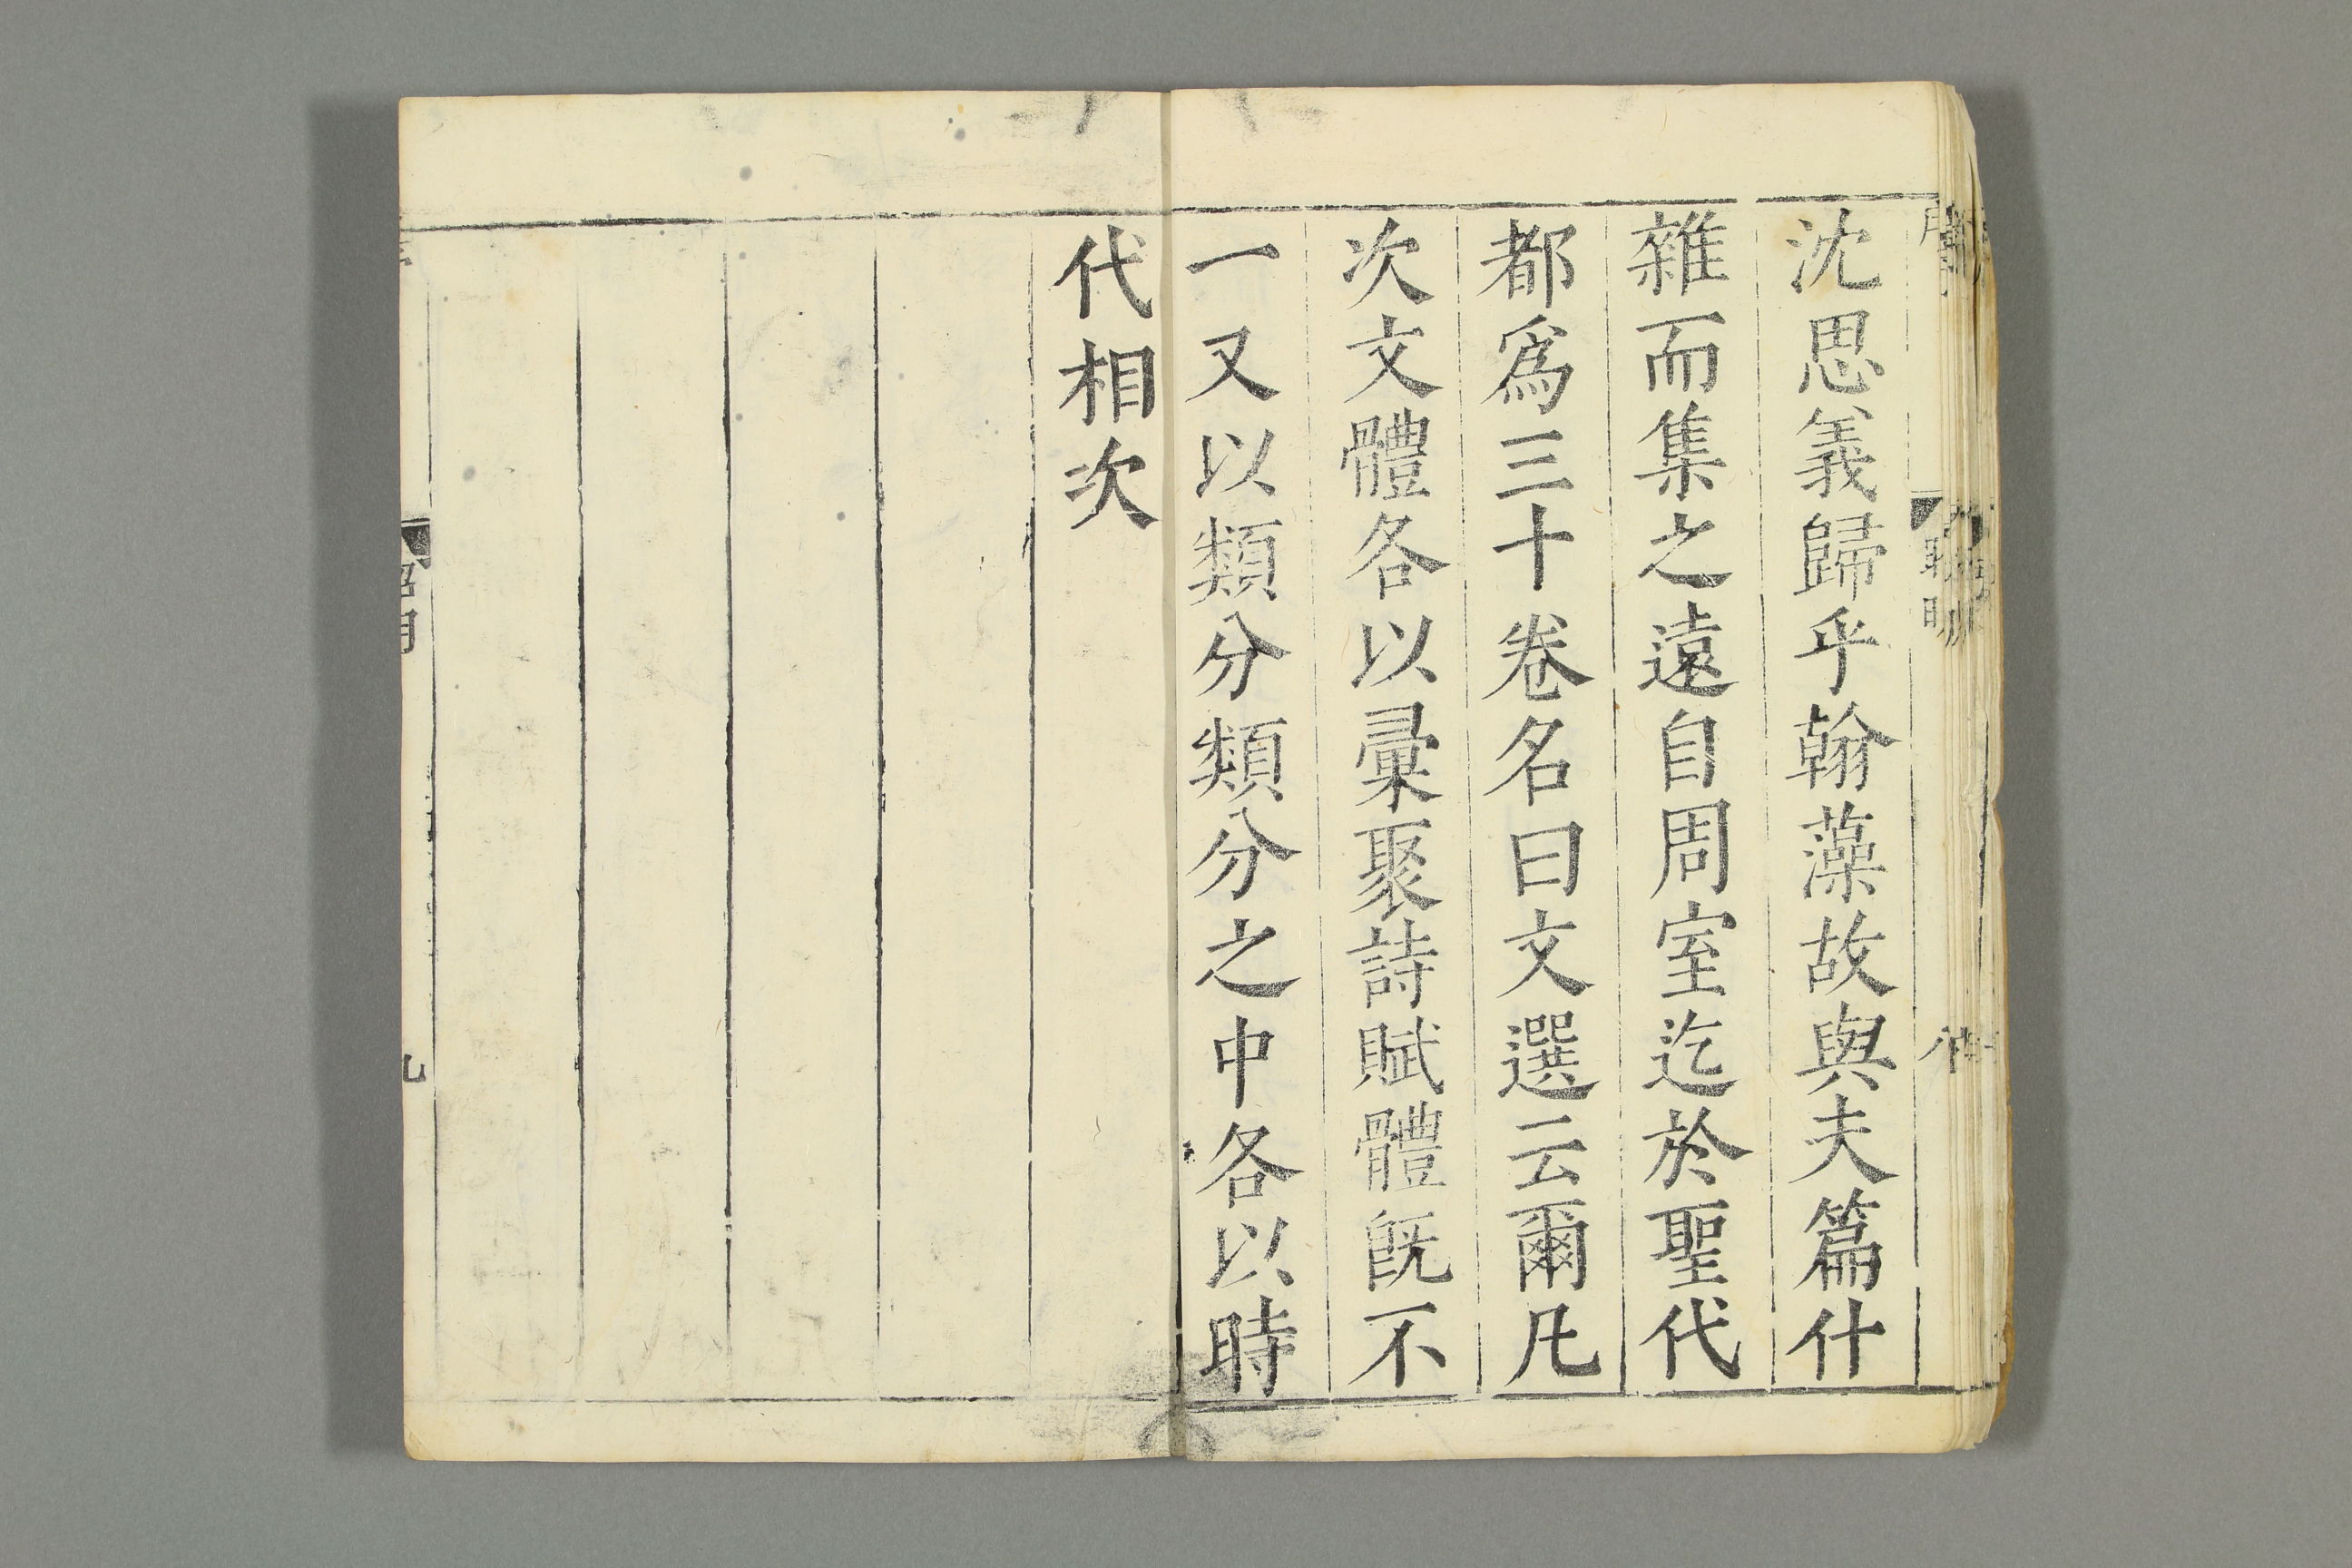 沈思義歸乎翰藻故與夫篇什
雜而集之遠自周室迄於聖代
都爲三十卷名曰文選云爾凡
次文體各以彙聚詩賦體旣不
一又以類分類分之中各以時
代相次